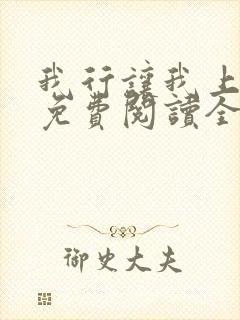 我行讓我上
免費閱讀全
御史大夫